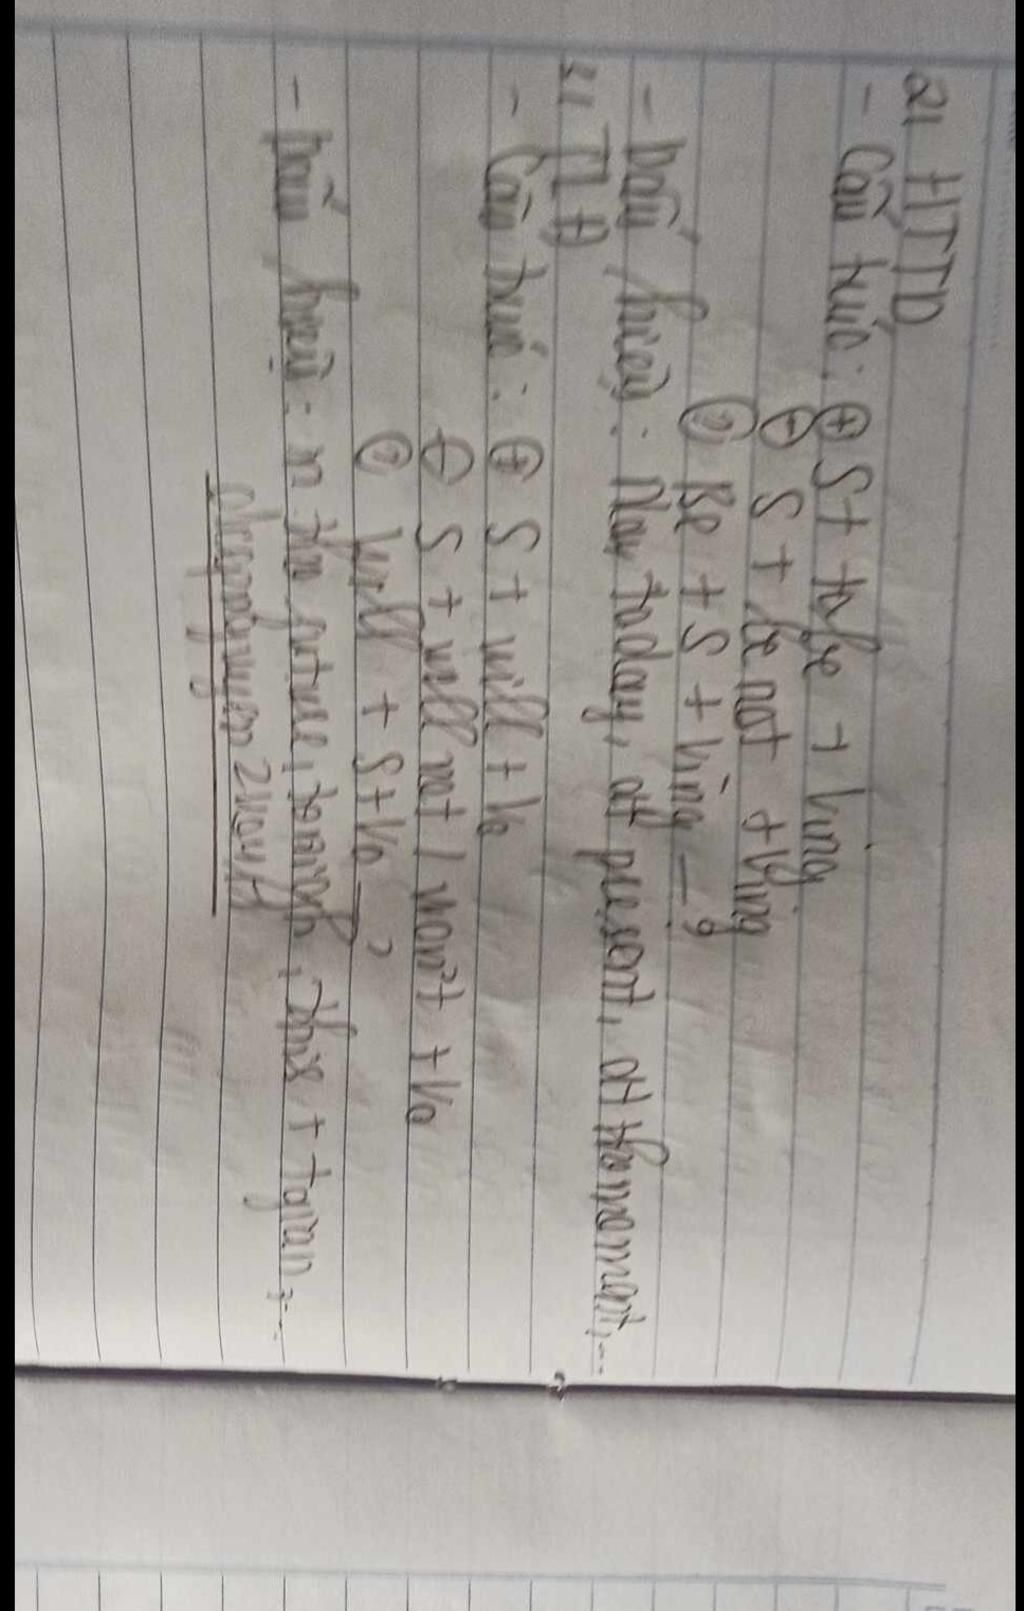 2, HTTD
- Cấu trúc: ⊕ S + to be + Ving
⊖ S + be not + Ving
? Be + S + Ving - ?
- Dấu hiệu: Now, today, at present, at the moment, ...
3, TLĐ
- Cấu trúc: ⊕ S + will + V0
⊖ S + will not / won't + V0
? Will + S + V0 - ?
- Dấu hiệu: in the future, tonight, this + tgian + ...